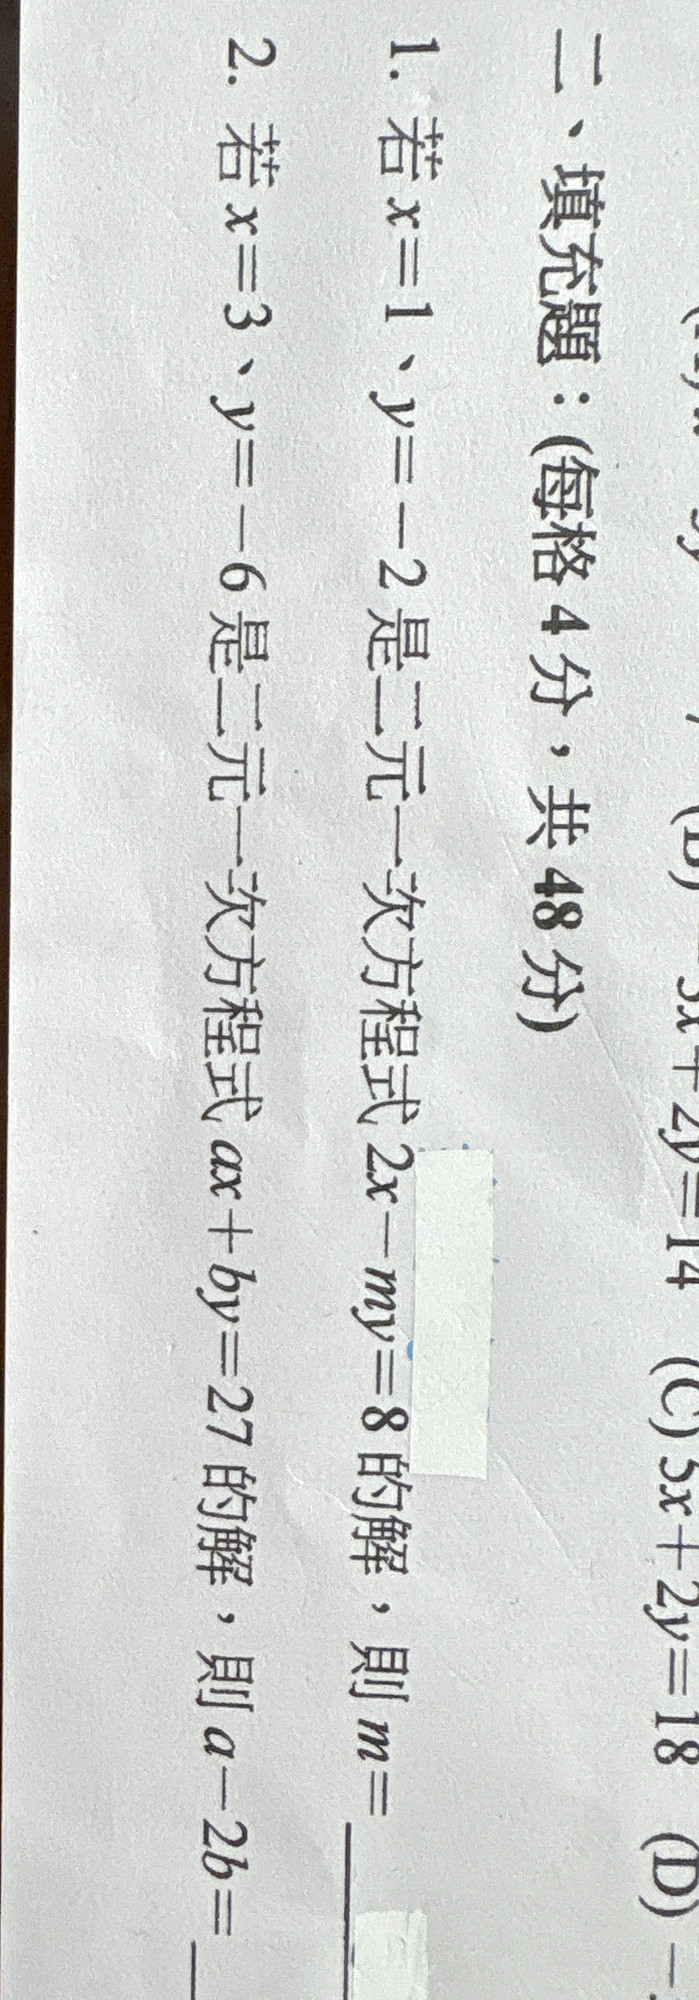 3x+2y=14 (C) 5x+2y=18 (D) -
二、填充題：(每格 4 分，共 48 分)
1. 若 x=1、y=-2 是二元一次方程式 2x-my=8 的解，則 m=
2. 若 x=3、y=-6 是二元一次方程式 ax+by=27 的解，則 a-2b=